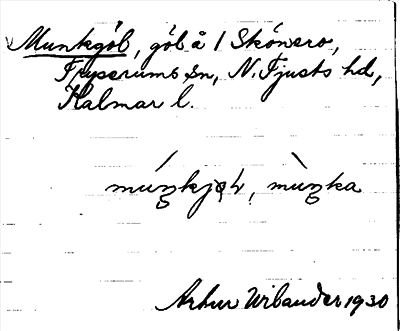 Munkgöl, göl å 1 Skönero,
Fryserums sn, N. Tjusts hd,
Kalmar l.
múŋkjøḷ, mùŋka
Arthur Wibander 1930